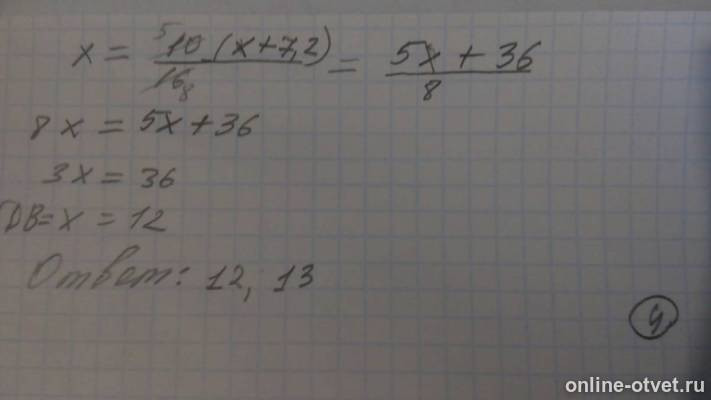 x = 10 (x+7,2) / 16 = 5x + 36 / 8
5
8
8x = 5x + 36
3x = 36
DB = x = 12
Ответ: 12, 13
4
online-otvet.ru